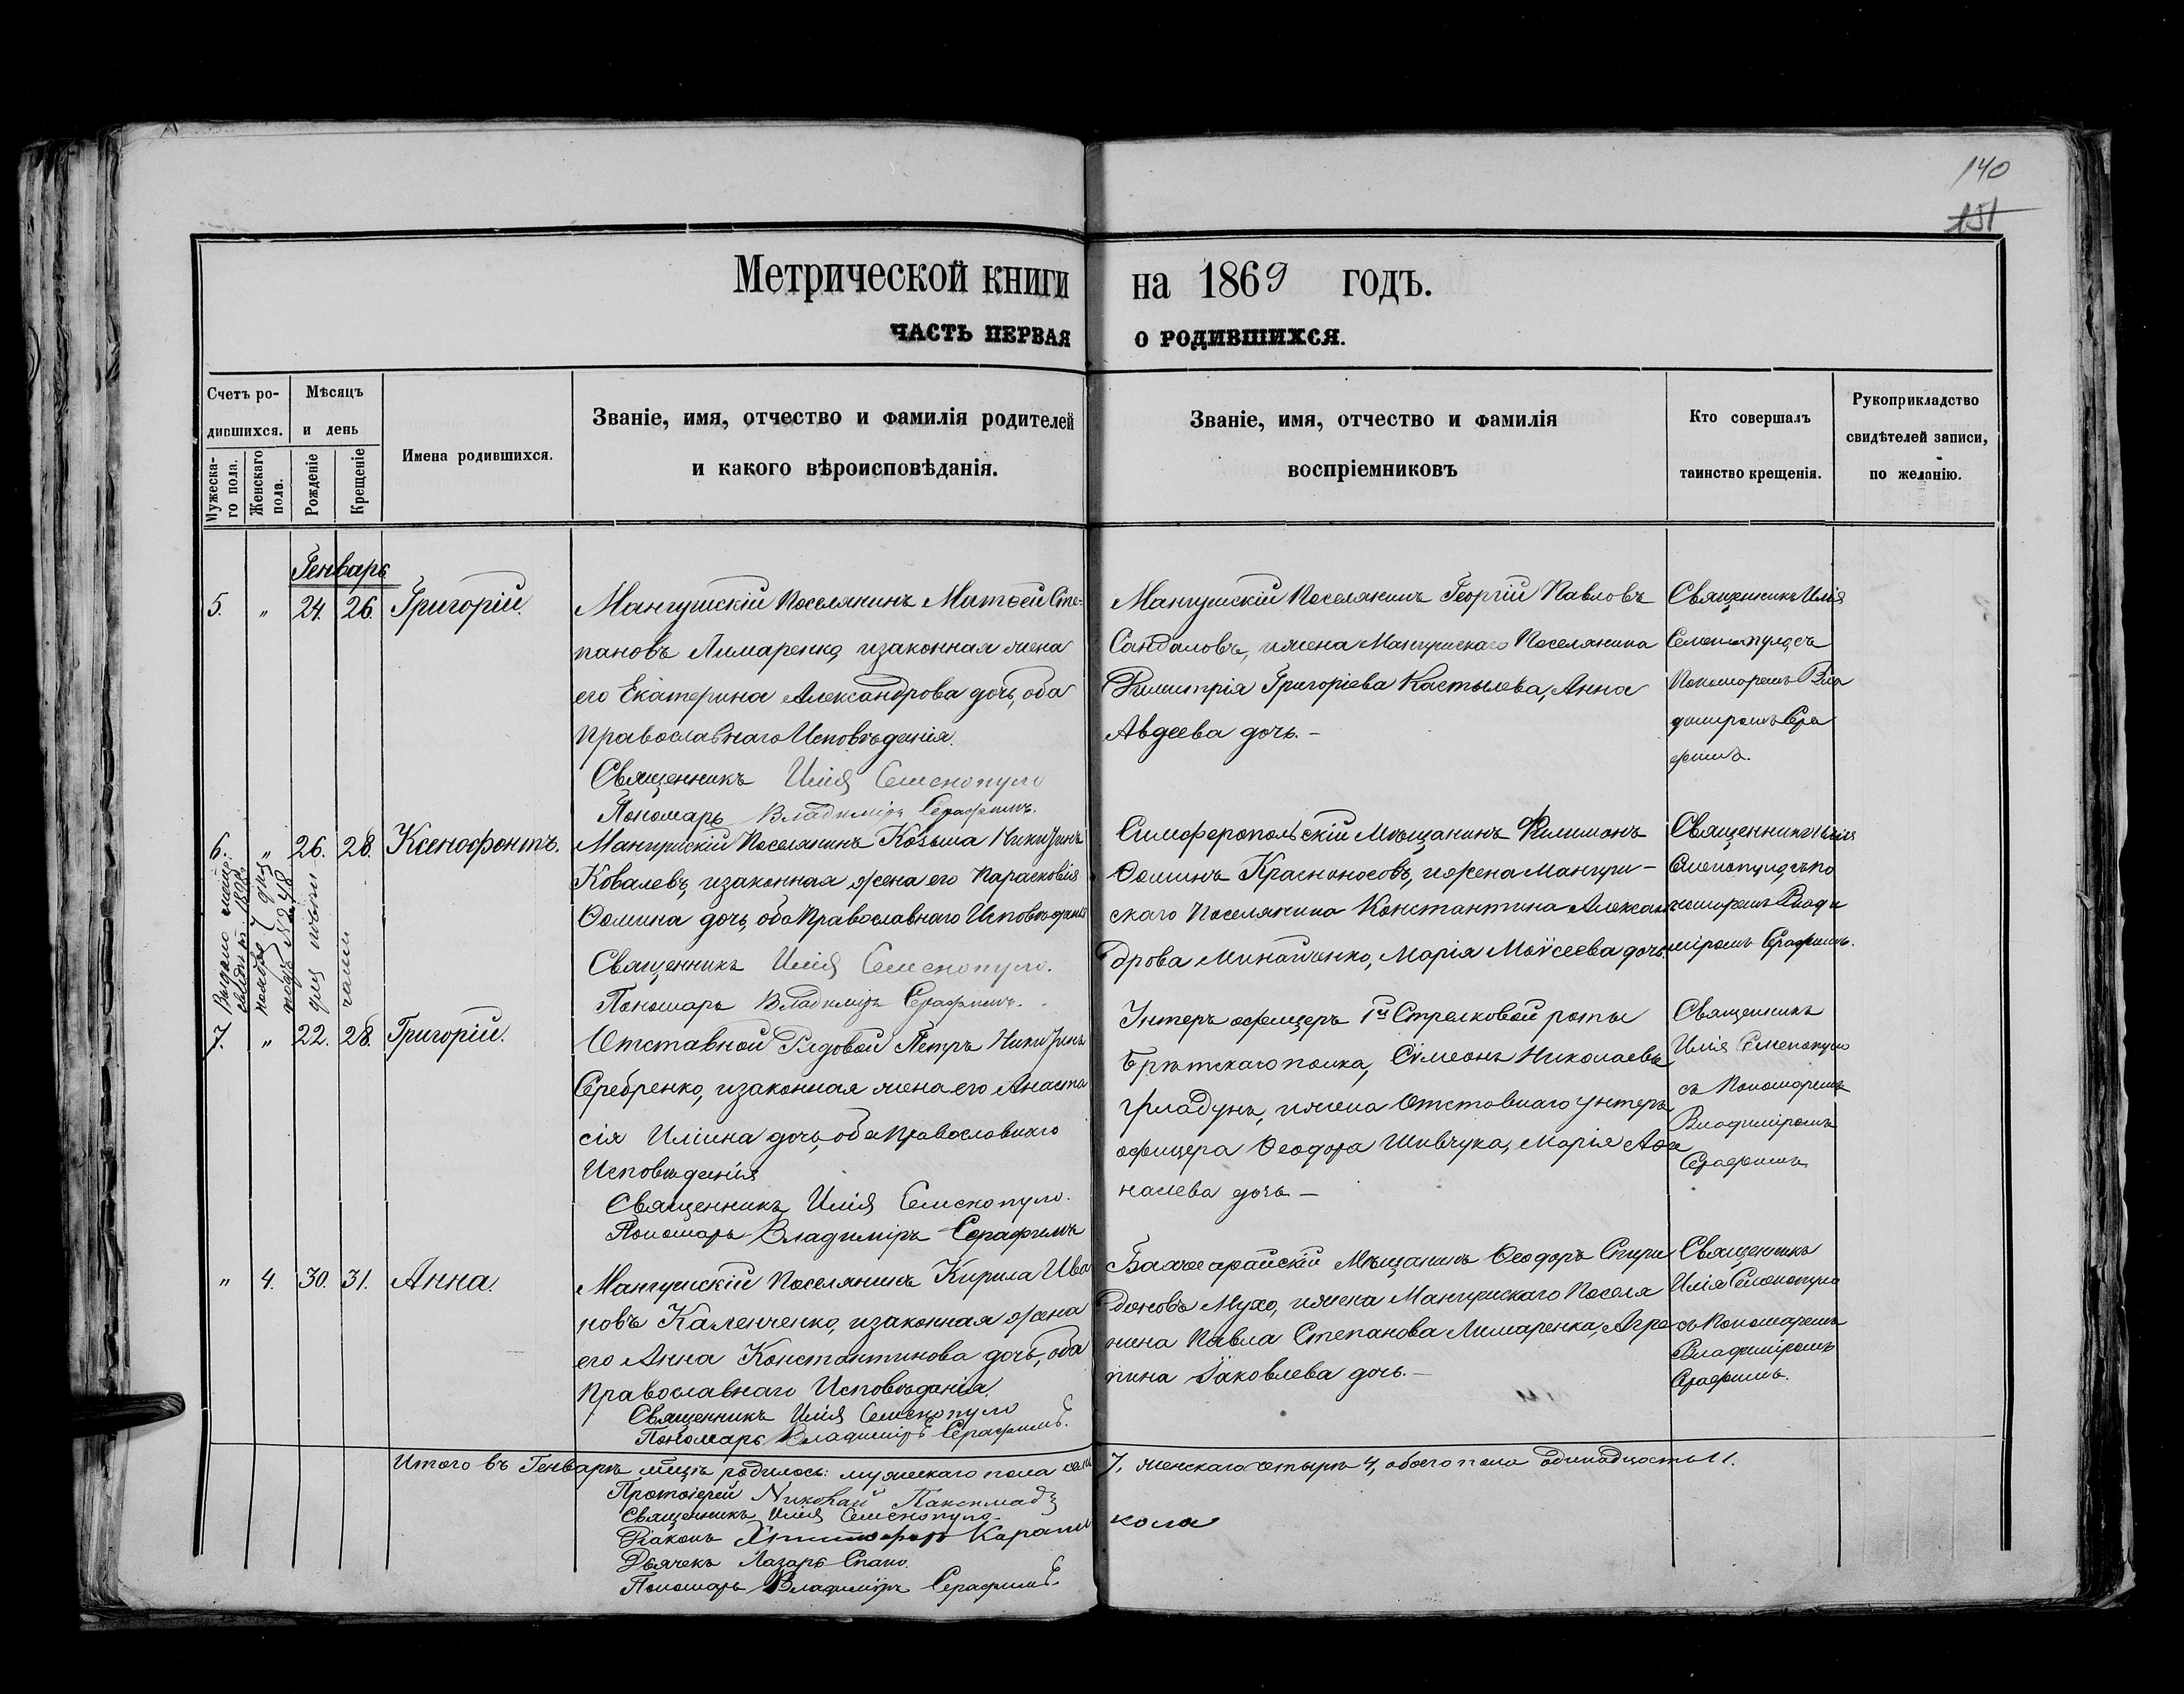 140
151
Метрической книги на 1869 годъ.
ЧАСТЬ ПЕРВАЯ О РОДИВШИХСЯ.
Счетъ ро-
дившихся.
Мужеска-
го пола.
Женскаго
пола.
Мѣсяцъ
и день
Рожденіе
Крещеніе
Имена родившихся.
Званіе, имя, отчество и фамилія родителей
и какого вѣроисповѣданія.
Званіе, имя, отчество и фамилія
воспріемниковъ
Кто совершалъ
таинство крещенія.
Рукоприкладство
свидѣтелей записи,
по желанію.
Генварь
5. " 24. 26. Григорій.
Мангушскій Поселянинъ Матѳей Сте-
пановъ Лимаренко, изаконная жена
его Екатерина Александрова дочь, оба
Православнаго Исповѣданія.
Священникъ Илія Семенопуло
Пономарь Владиміръ Серафимъ.
Мангушскій Поселянинъ Георгій Павловъ
Сандаловъ, ижена Мангушскаго Поселянина
Димитрія Григоріева Костылева, Анна
Авдеева дочь.-
Священникъ Илія
Семенопуло, съ
Пономаремъ Вла
диміромъ Сера
фимъ.
6. " 26. 28. Ксенофонтъ.
Мангушскій Поселянинъ Козьма Никитинъ
Ковалевъ, изаконная жена его Парасковія
Ѳомина дочь, оба Православнаго Исповѣданія
Священникъ Илія Семенопуло.
Пономарь Владиміръ Серафимъ.
Симферопольскій Мѣщанинъ Филимонъ
Ѳоминъ Красноносовъ, ижена Мангуш-
скаго Поселянина Константина Алексан
дрова Минайченко, Марія Моѵсеева дочь.
Священникъ Илія
Семенопуло, съ по
номаремъ Влади
міромъ Серафимъ.
7. " 22. 28. Григорій.
Отставной Рядовой Петръ Никитинъ
Серебренко, изаконная жена его Анаста
сія Иліина дочь, оба Православнаго
Исповѣданія
Священникъ Илія Семенопуло.
Пономарь Владиміръ Серафимъ
Унтеръ офицеръ 1й Стрелковой роты
полка, Сѵмеонъ Николаевъ
ижена Отставнаго унтеръ
офицера Ѳеодора Шивчука, Марія Аѳа
насева дочь -
Священникъ
Илія Семенопуло
съ Пономаремъ
Владиміромъ
Серафимъ
" 4. 30. 31. Анна.
Мангушскій Поселянинъ Кирила Ива
новъ Каленченко, изаконная жена
его Анна Константинова дочь, оба
Православнаго Исповѣданія.
Священникъ Илія Семенопуло
Пономарь Владиміръ Серафимъ.
Бахчесарайскій Мѣщанинъ Ѳеодоръ Спири
доновъ Мухо, ижена Мангушскаго Поселя
нина Павла Степанова Лимаренка, Агре
пина Іаковлева дочь.-
Священникъ
Илія Семенопуло
съ Пономаремъ
Владиміромъ
Серафимъ.
Итого въ Генварѣ мцѣ родилось: мужескаго пола семь 7, женскаго четыре 4, обоего пола одинадцать 11.
Протоіерей Николай
Священникъ Илія Семенопуло
Діаконъ Христофоръ Карапи кола
Дьячекъ Лазарь Спано.
Пономарь Владиміръ Серафимъ.